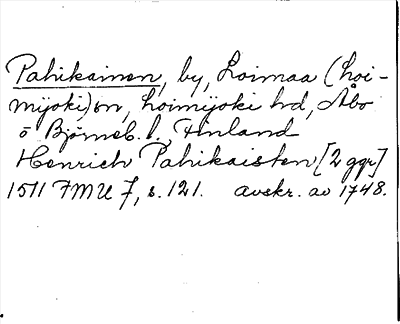 Pahikainen, by, Loimaa (Loi-
mijoki)sn, Loimijoki hd, Åbo
o Björneb. l., Finland
Henrich Pahikaisten [2 ggr]
1511 FMU 7, s. 121. avskr. av 1748.